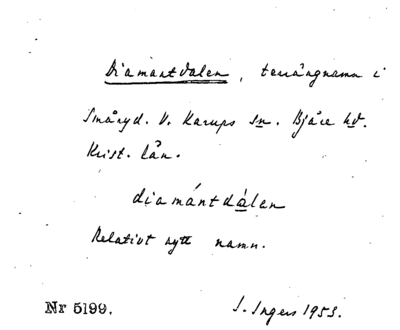 Diamantdalen, terrängnamn i
Småryd. V. Karups sn. Bjäre hd.
Krist. län.
diamántdálen
Relativt nytt namn.
Nr 5199. I. Ingers 1953.